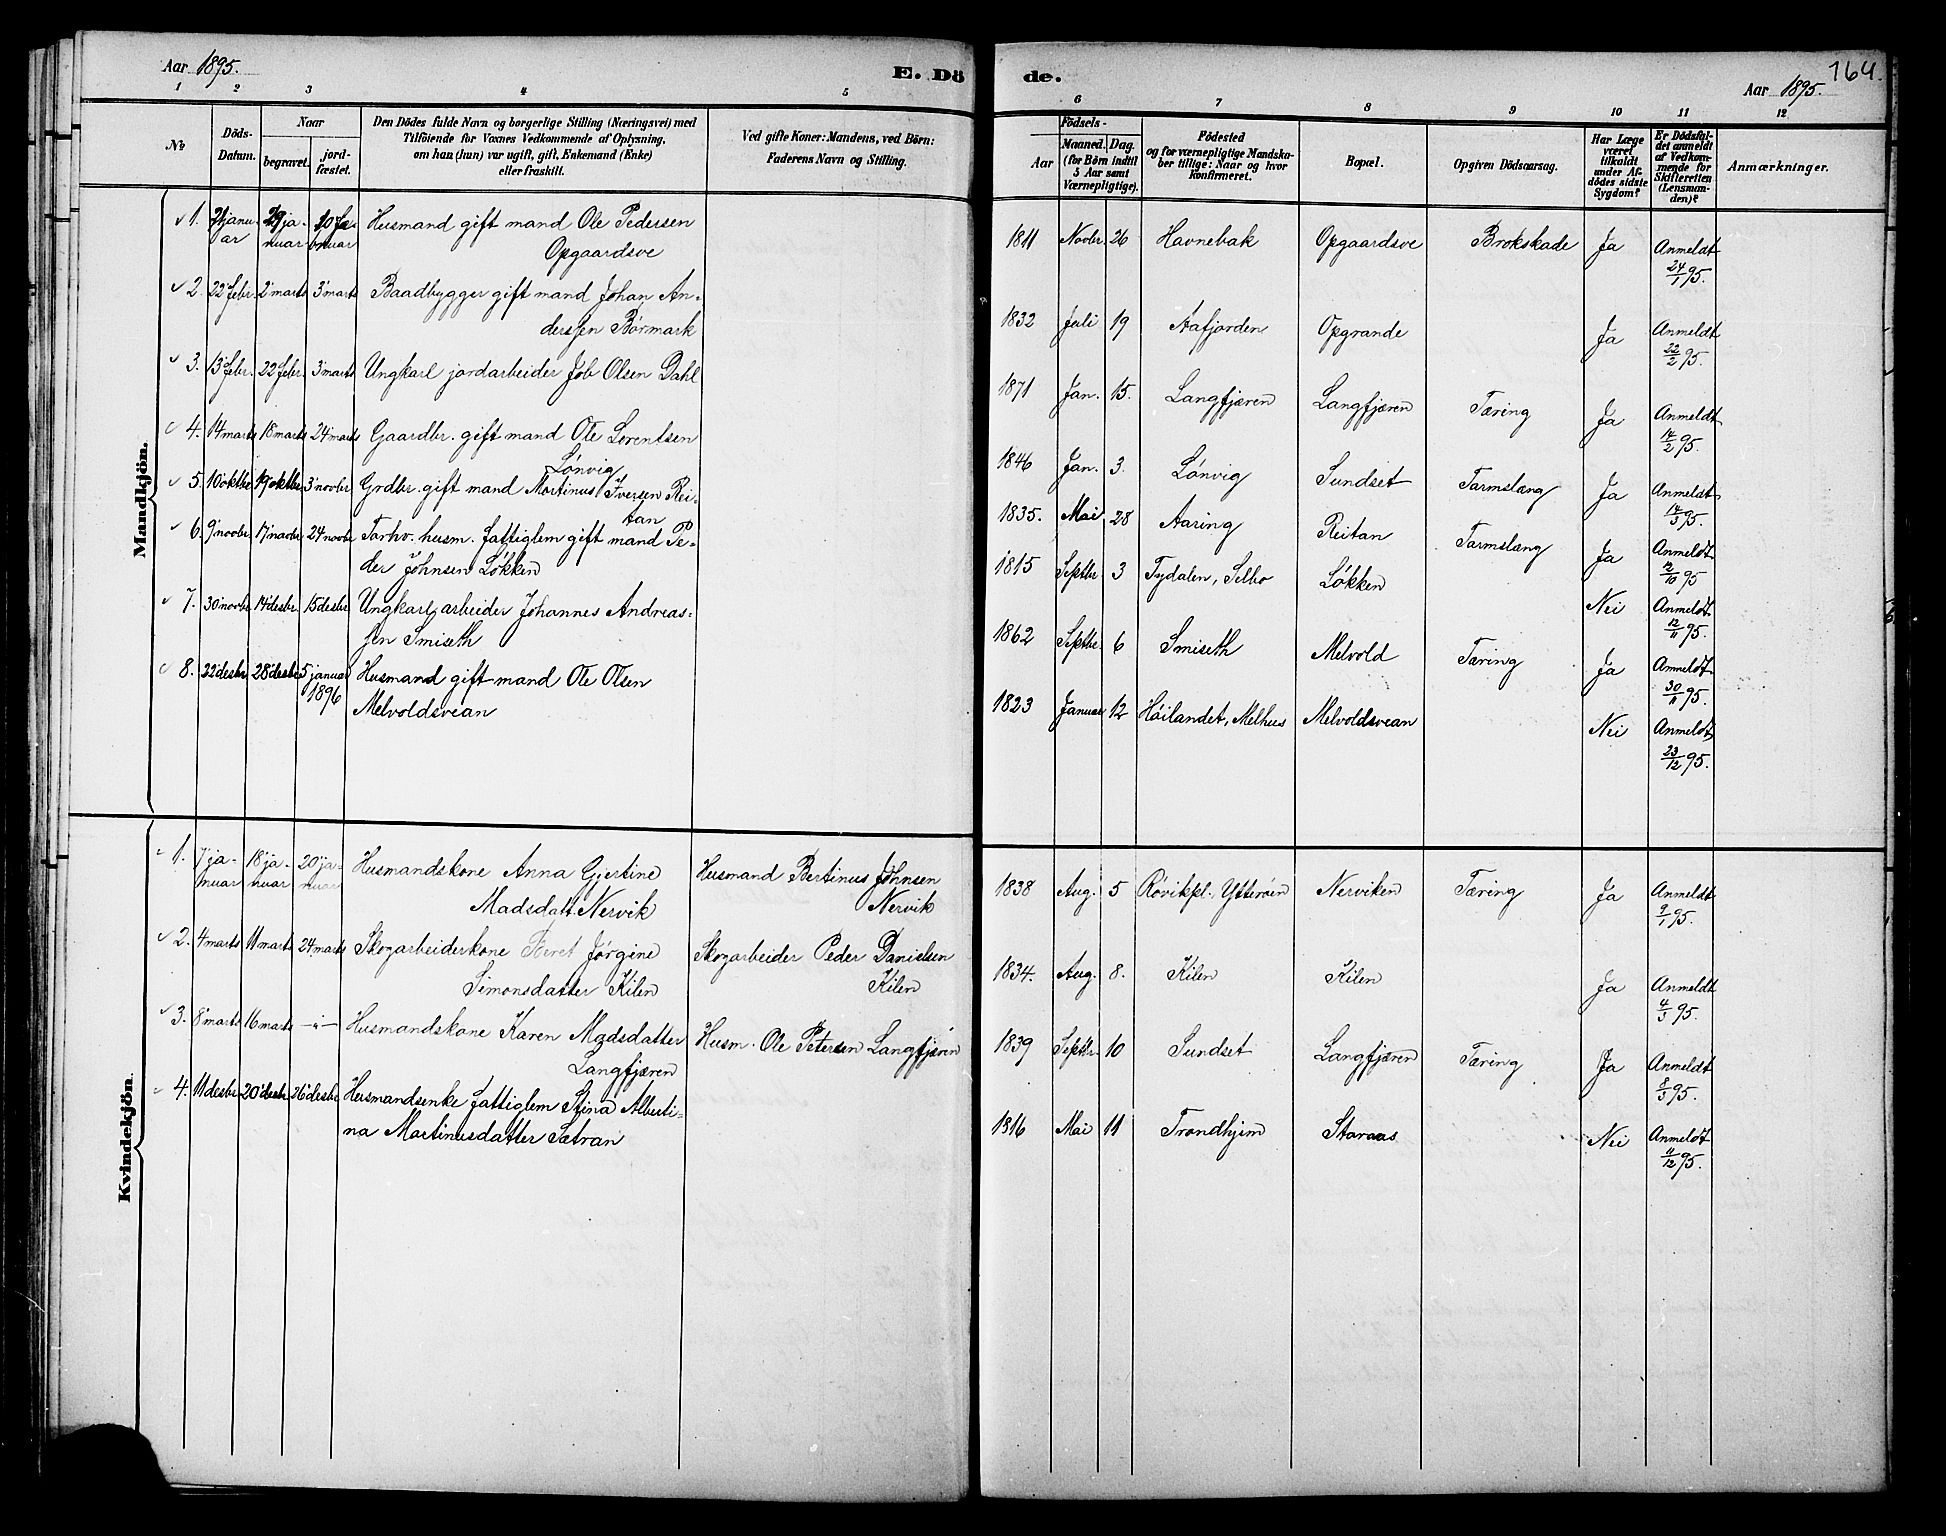 Aar 1895.
E. Dö
1 2 3 4 5
No
Döds-Datum.
Naar
begravet.
jord-fæstet.
Den Dödes fulde Navn og borgerlige Stilling (Næringsvei) med
Tilföiende for Voxnes Vedkommende af Oplysning,
om han (hun) var ugift, gift, Enkemand (Enke)
eller fraskilt.
Ved gifte Koner: Mandens, ved Börn:
Faderens Navn og Stilling.
Mandkjön.
1. januar 29 januar Husmand gift mand Ole Pedersen
Opgaardsve
2. 22 febr. 2 marts 3 marts Baadbygger gift mand Johan An-
derssen Børmark
3. 13 febr. 22 febr. 3 marts Ungkarl jordarbeider Job Olsen Dahl
4. 14 marts 18 marts 24 marts Gaardbr. gift mand Ole Lorentsen
Lønvig
5. 10 oktbr 19 oktbr 3 novbr Grdbr. gift mand Martinus Iversen Rei-
tan
6. 9 novbr 17 novbr 24 novbr Forhv. husm. fattiglem gift mand Pe-
der Johnsen Løkken
7. 30 novbr 14 desbr. 15 desbr Ungkarl, arbeider Johannes Andreas-
sen Smiseth
8. 22 desbr 28 desbr 5 januar 1896 Husmand gift mand Ole Olsen
Melvoldsvean
Kvindekjön.
1. 7 januar 18 januar 20 januar Husmandskone Anna Gjertine Husmand Bertinus Johnsen
Madsdatt. Nervik Nervik
2. 4 marts 11 marts 24 marts Skogarbeiderkone Beret Jørgine Skogarbeider Peder Danielsen
Simonsdatter Kilen Kilen
3. 8 marts 16 marts -"- Husmandskone Karen Madsdatter Husm. Ole Petersen Langfjæren
Langfjæren
4. 11 desbr 20 desbr 26 desbr Husmandsenke fattiglem Stina Alberti-
na Martinusdatter Sætran
de.
164.
Aar 1895.
6 7 8 9 10 11 12
Födsels-
Aar
Maaned. Dag.
(for Börn indtil
5 Aar samt
Værnepligtige).
Födested
og for værnepligtige Mandska-
ber tillige: Naar og hvor
konfirmeret.
Bopæl.
Opgiven Dödsaarsag.
Har Læge
været
tilkaldt
under Af-
dödes sidste
Sygdom?
Er Dödsfal-
det anmeldt
af Vedkom-
mende for
Skifteretten
(Lensman-
den)?
Anmærkninger.
1811 Novbr. 26 Havnebak Opgaardsve Brokskade Ja Anmeldt
24/1 95.
1832 Juli 19 Aafjorden Opgrande Ja Anmeldt
22/2 95.
1871 Jan. 15. Langfjæren Langfjæren Tæring Ja Anmeldt
14/2 95.
1846 Jan. 3. Lønvig Sundset Tarmslæng Ja Anmeldt
14/3 95.
1835. Mai 28 Aaring Reitan Tarmslæng Ja Anmeldt
12/10 95
1815 Septbr 3 Tydalen, Selbo Løkken Nei Anmeldt
12/11 95.
1862 Septbr. 6 Smiseth Melvold Tæring Ja Anmeldt
30/11 95.
1823 Januar 12 Høilandet, Melhus Melvoldsvean Nei Anmeldt
23/12 95.
1838 Aug. 5 Røvikpl. Ytterøen Nerviken Tæring Ja Anmeldt
9/1 95.
1834. Aug. 8. Kilen Kilen Ja Anmeldt
4/3 95.
1839 Septbr. 10 Sundset Langfjæren Tæring Ja Anmeldt
8/3 95.
1816 Mai 11 Trondhjem Staraas Nei Anmeldt
11/12 95.